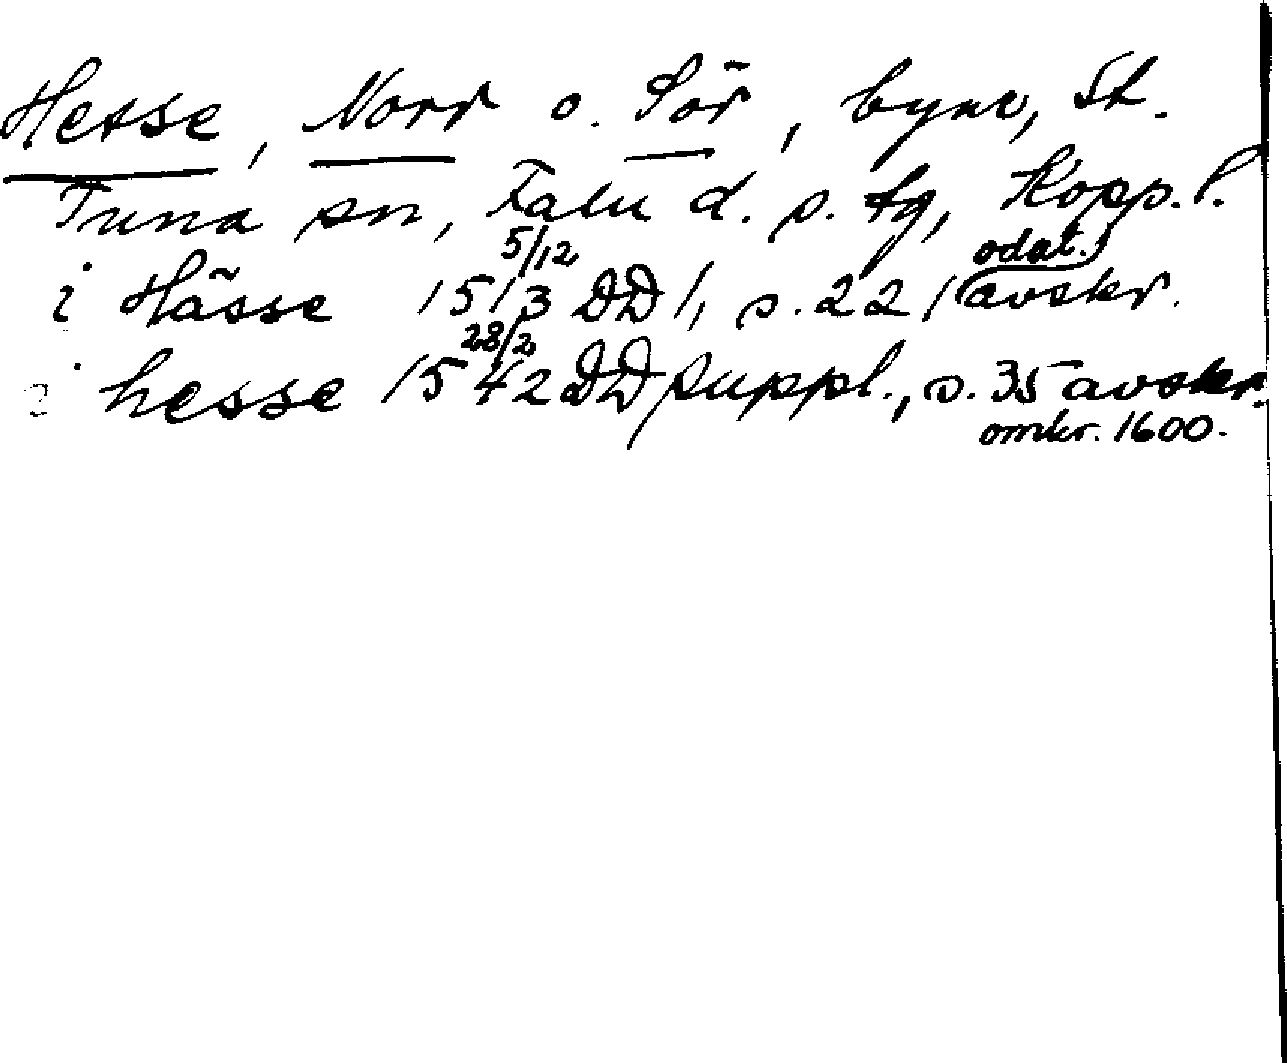 Hesse, Norr o. Sör, byar, St.
Tuna sn, Falu d. s. tg, Kopp. l.
i Hässe 1513 5/12 DD 1, s. 221 (odat. avskr.
i hesse 1542 28/2 DD suppl., s. 35 avskr.
omkr. 1600.